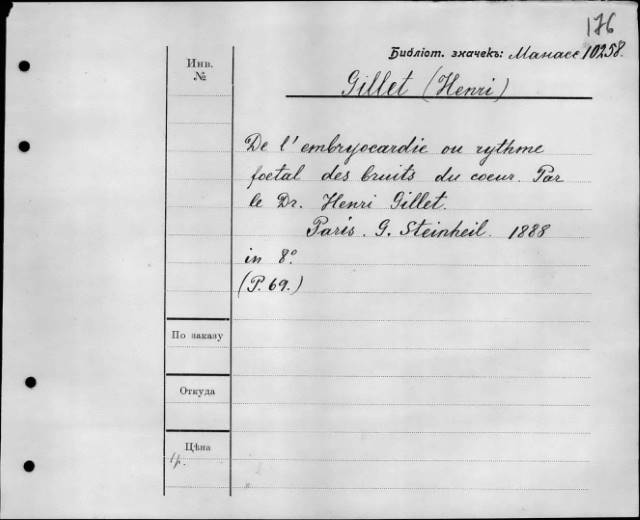 176
Инв. №
Библіот. значекъ: Манасс 10258.
Gillet (Henri)
De l'embryocardie ou rythme
foetal des bruits du coeur. Par
le Dr. Henri Gillet.
Paris. G. Steinheil. 1888
in 8°
(P. 69.)
По заказу
Откуда
Цѣна
1р.